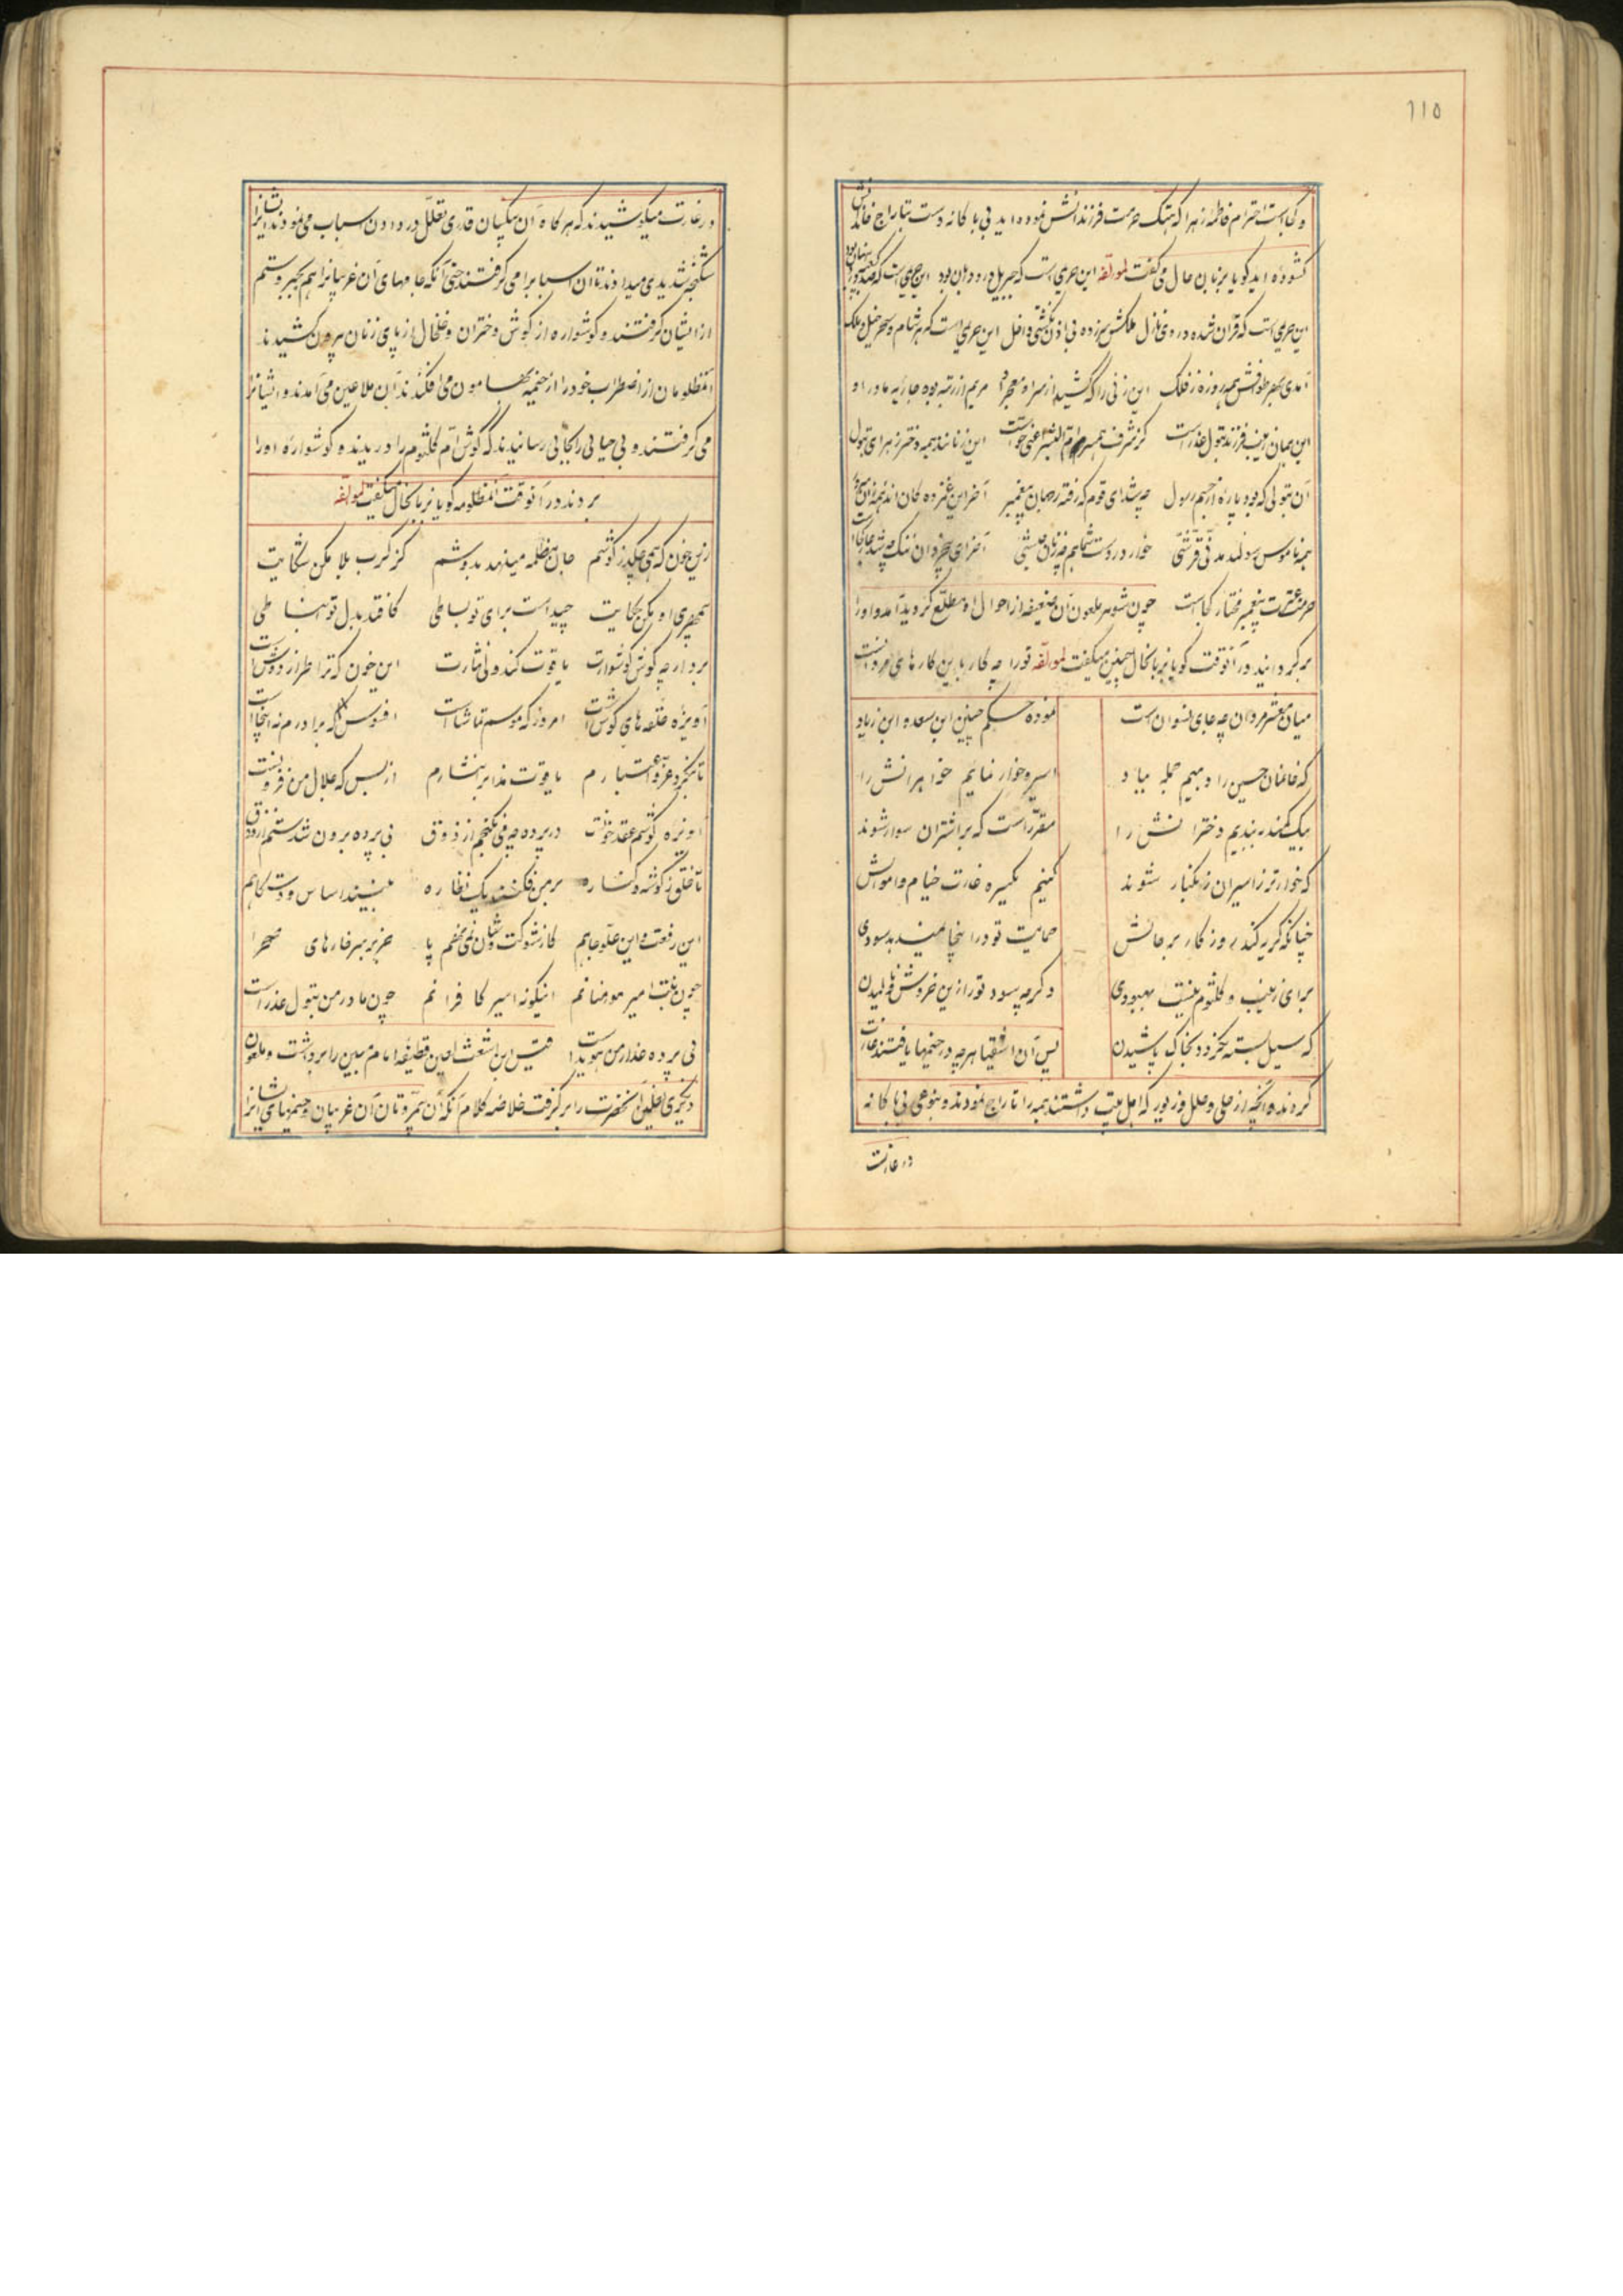 ۱۱۵
و کجاست احترام فاطمه زهرا که هتک حرمت فرزندانش نموده اید بی باکانه دست بتاراج خانه اش
کشوده اید کویا بزبان حال می کفت لمولفه این حریمی است که جبریل درو دربان بود این حریمی است که
این حریمی است که قرآن شده در وی نازل ملائکش سر زده بی اذن نکشتی داخل این حریمی است که هر شام و سحر خیل ملک
آمدی بهر طوافش همه روزه ز فلک این زنی را که کشید از سر او معجر مریم از رتبه بود جاریه مادر او
این همان زینب فرزند بتول عذراست کز شرف همسر این زنانند همه دختر زهرای بتول
آن بتولی که بود پاره از جسم رسول چه شد ای قوم که رفته ز میان پیغمبر آخر این غمزده کان اند
همه ناموس رسولند مدنی قرشی خوار در دست شما همچه زنان حبشی آخر ای بیخردان ننک چه شد عار کجاست
حرمت عترت پیغمبر مختار کجاست چون شوهر ملعون آن ضعیفه از احوال او مطلع کردید آمد و او را
بر کردانید در آنوقت کویا بزبانحال چنین میکفت لمولفه تو را چه کار باین کارهای مردانست
میان معشر مردان چه جای نسوان است نموده حکم چنین ابن سعد و ابن زیاد
که خانمان حسین را دهیم جمله بباد اسیر و خوار نمائیم خواهرانش را
بیک کمند ببندیم دخترانش را مقرر است که بر اشتران سوار شوند
که خوارتر ز اسیران زنکبار شوند کنیم یکسره غارت خیام و اموالش
چنانکه کریه کند روزکار بر حالش حمایت تو در اینجا نمیدهد سودی
برای زینب و کلثوم نیست بهبودی دکر چه سود تو را زین خروش و نالیدن
که سیل بسته نکردد بخاک پاشیدن پس آن اشقیا هر چه در خیمها یافتند غارت
کردند و آنچه از حلی و حلل و زیور که اهل بیت داشتند همه را تاراج نمودند و بنوعی بی باکانه
در غارت
در غارت میکوشیدند که هر کاه آن بیکسان قدری تعلل در دادن اسباب می نمودند ایشانرا
شکنجه شدیدی میدادند تا آن اسبابرا می کرفتند حتی آنکه جامهای آن غریبانرا هم بجبر و ستم
از ایشان کرفتند و کوشواره از کوش دختران و خلخال از پای زنان بیرون کشیدند
آنمظلومان از اضطراب خود را از خیمه بهامون می افکندند آن ملاعین می آمدند و ایشانرا
می کرفتند و بی حیائی را بجائی رسانیدند که کوش ام کلثوم را دریدند و کوشواره او را
بردند در آنوقت آنمظلومه کویا بزبانحال میکفت لمولفه
زین خون که همی چکد ز کوشم جان مظلمه مینهد بدوشم کز کرب بلا مکن شکایت
بیمهری او مکن حکایت چیداست برای تو بساطی کافتد بدل تو انبساطی
بردار چه کوش کوشوارت یاقوت کند ولی نثارت این خون که ترا طراز دوش است
آویزه حلقه های کوش است امروز که موسم تماشاست افسوس که برادرم نه اینجاست
تا بنکرد عز و اعتبارم یاقوت مذاب انتشارم از بس که علال من فزونست
آویزه کوشم عقد خونست در پرده چه می نکنجم از ذوق بی پرده برون شدستم از ذوق
تا خلق ز کوشه و کناره بر من فکنند یک نظاره بینند اساس و دستکاهم
این رفعت و این علو جاهم کاز شوکت و شان نمی نهم پا جز بر سر خارهای صحرا
چون بنت امیر مومنانم اینکونه اسیر کافرانم چون مادر من بتول عذراست
بی پرده عذار من هویداست قیس ابن اشعث لعین قطیفه امام مبین را برداشت و ملعون
دیکری نعلین آنحضرت را بر کرفت خلاصه کلام آنکه آن بیمروتان آن غریبان و خیمهای ایشانرا